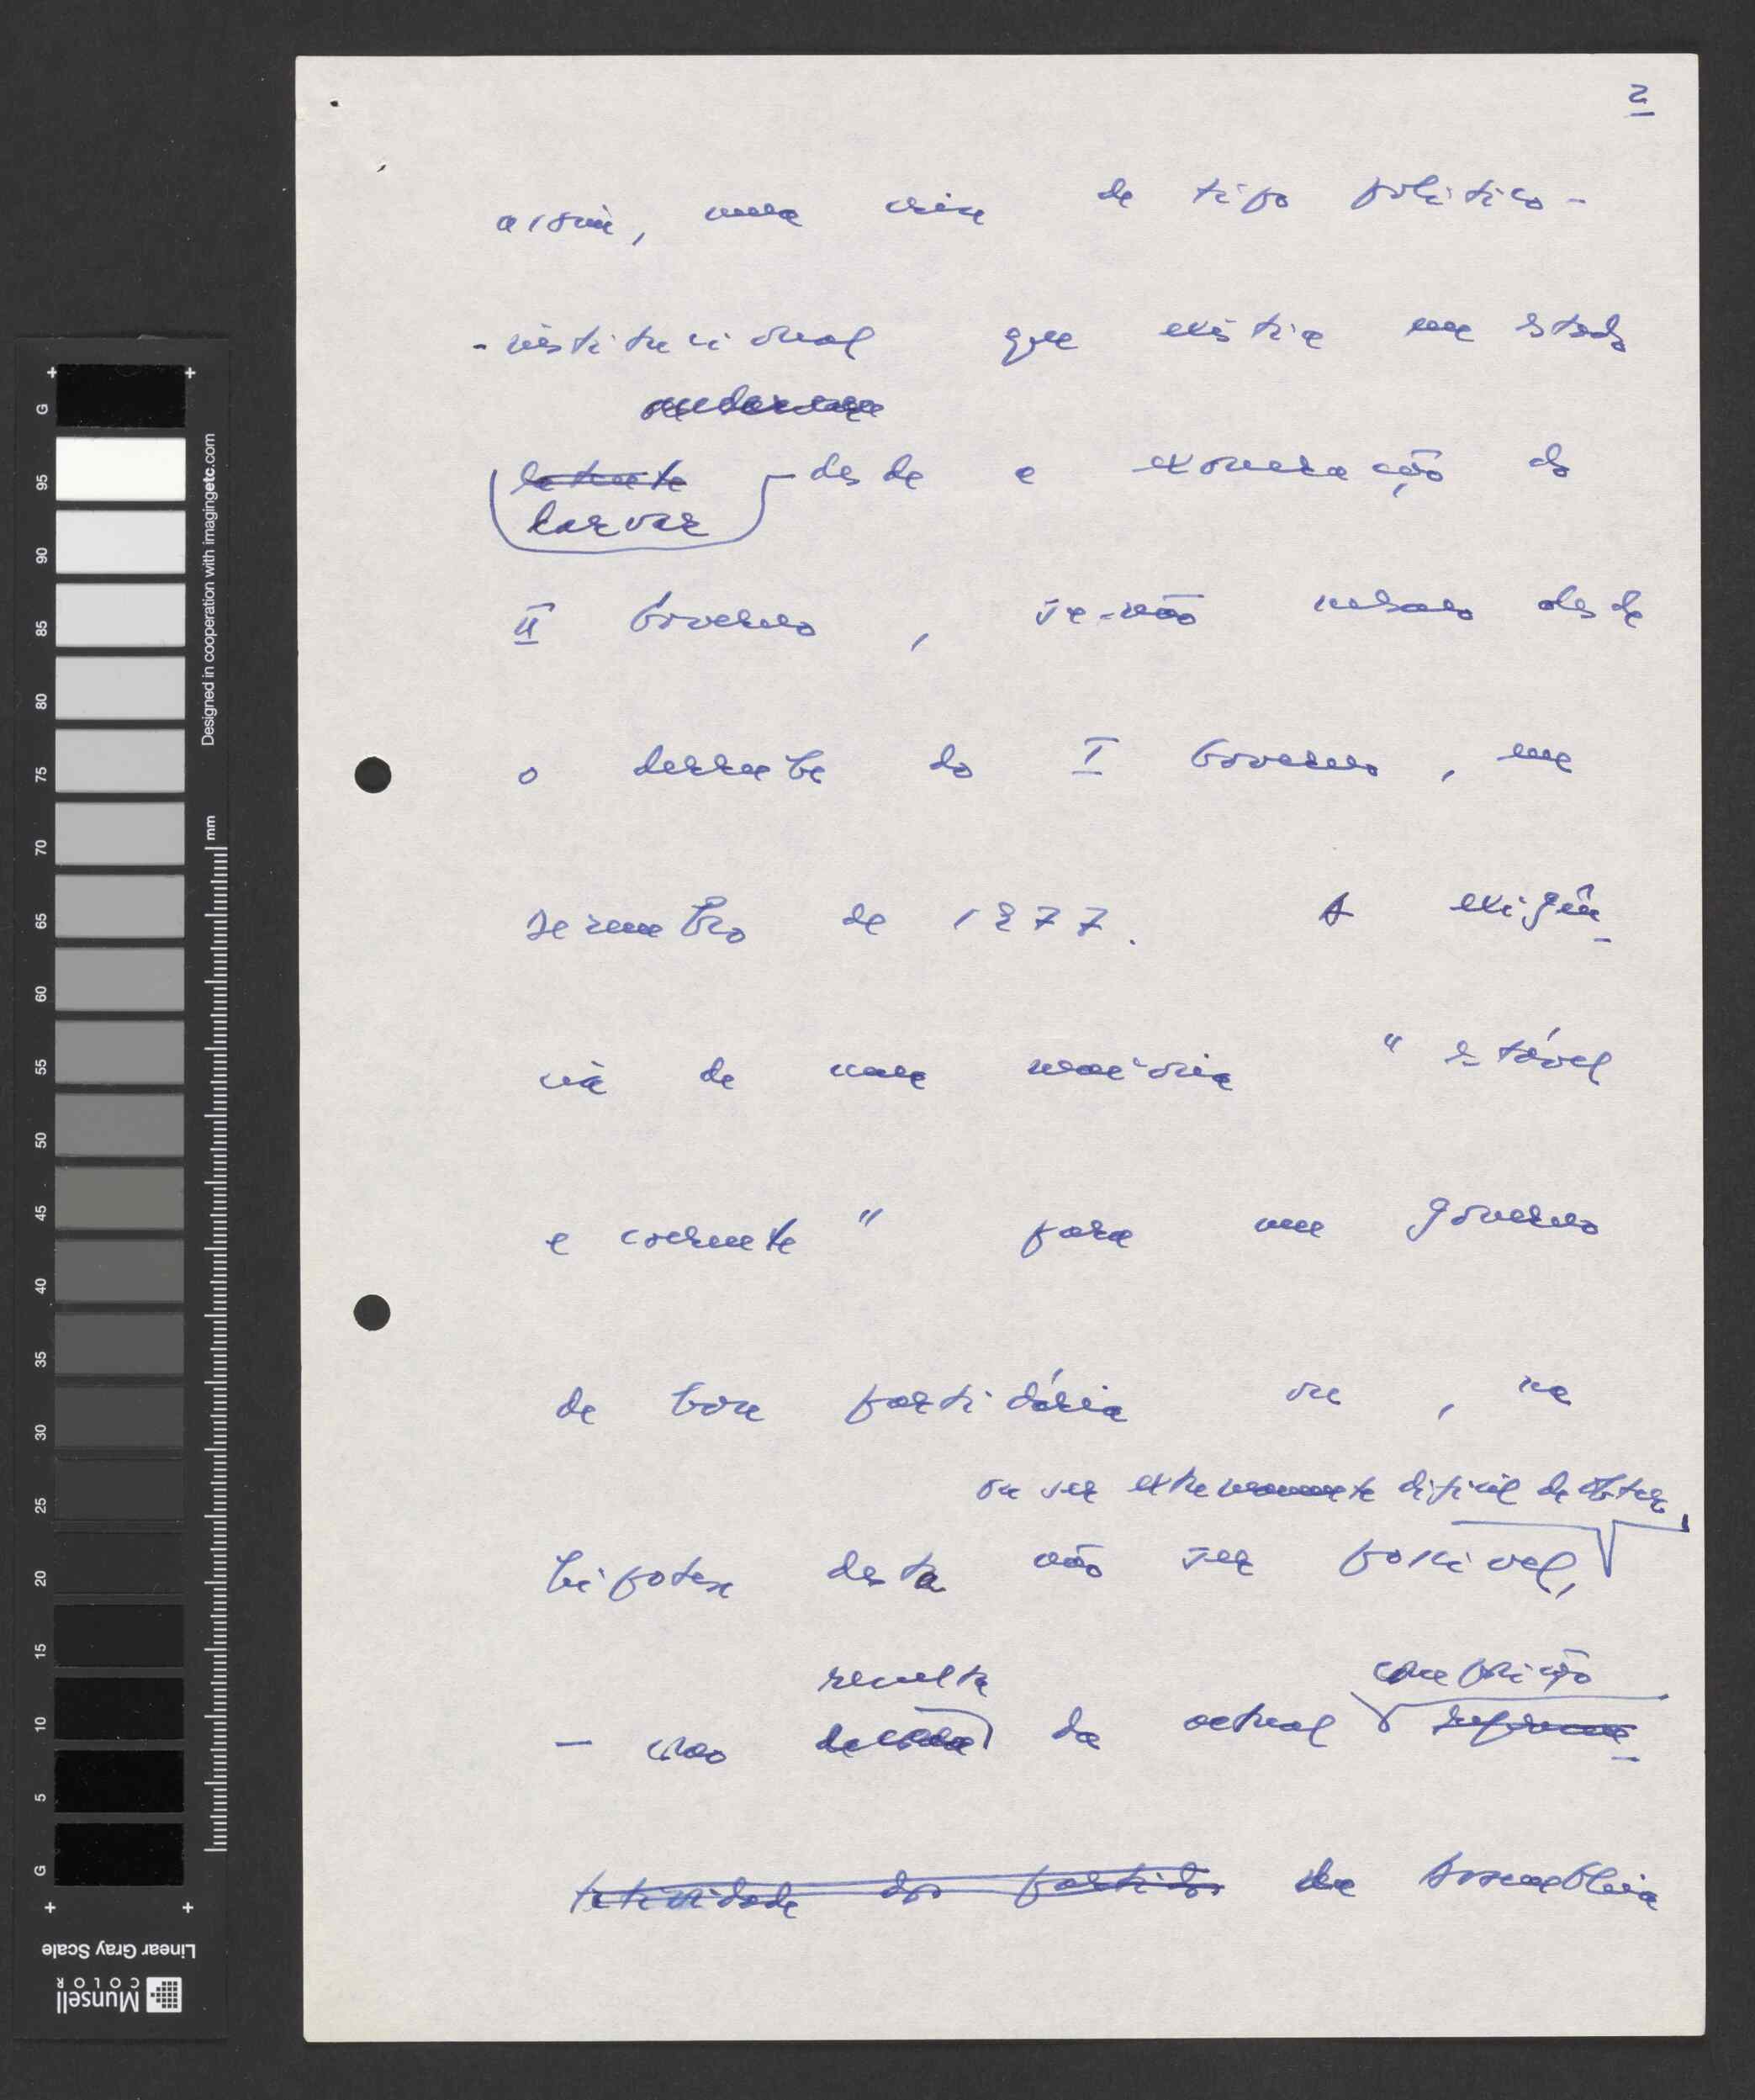 2
assim, uma crise de tipo político-
-institucional que existia em estado
latente
larvar desde a exoneração do
II Governo, se-não mesmo desde
o derrube do I Governo, em
Dezembro de 1977. A exigên-
cia de uma maioria "estável
e coerente" para um governo
de base partidária ou, na
ou ser extremamente difícil de obter,
hipótese desta não ser possível,
resulta composição
— caso da actual
tatividade dos partidos da Assembleia
G
95
90
85
80
75
70
65
60
55
50
45
40
35
30
25
20
15
10
5
G
mm
Designed in cooperation with imagingetc.com
Linear Gray Scale
Munsell
COLOR